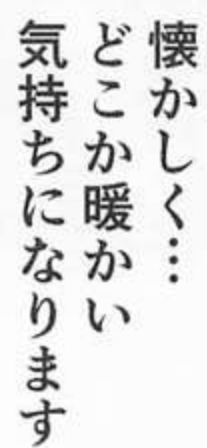 懐かしく…
どこか暖かい
気持ちになります